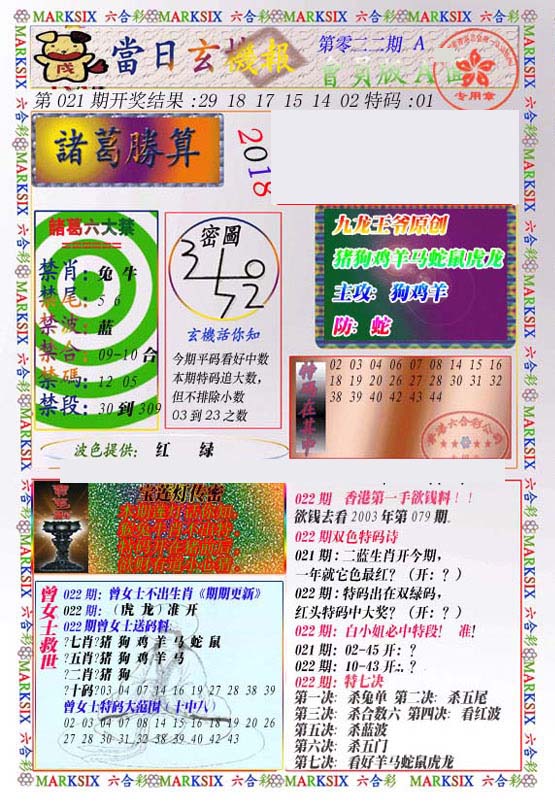 MARKSIX 六合彩 MARKSIX 六合彩 MARKSIX 六合彩 MARKSIX 六合彩
當日玄機報
第零二二期 A
會員版 A面
专用章
第 021 期开奖结果 :29 18 17 15 14 02 特码 :01
諸葛勝算
2018
諸葛六大禁
禁肖：兔 牛
禁尾：5 6
禁波：蓝
禁合：09-10 合
禁碼：12 05
禁段：30 到 309
密圖
玄機话你知
今期平码看好中数
本期特码追大数，
但不排除小数
03 到 23 之数
九龙王爷原创
猪狗鸡羊马蛇鼠虎龙
主攻：狗鸡羊
防：蛇
特码在其中
02 03 04 06 07 08 14 15 16
18 19 20 26 27 28 30 31 32
38 39 40 42 43 44
波色提供： 红 绿
宝莲灯传密
022 期： 曾女士不出生肖《期期更新》
022 期：（虎 龙）准 开
022 期曾女士送码料：
?七肖?猪 狗 鸡 羊 马 蛇 鼠
?五肖?猪 狗 鸡 羊 马
?二肖?猪 狗
?十码?03 04 07 14 16 19 27 28 38 39
曾女士特码大范围（十中八）
02 03 04 07 08 14 15 16 18 19 20 26
27 28 30 31 32 38 39 40 42 43
曾女士救世
022 期 香港第一手欲钱料！！
欲钱去看 2003 年第 079 期
022 期双色特码诗
021 期：二蓝生肖开今期，
一年就它色最红？（开：？）
022 期：特码出在双绿码，
红头特码中大奖？（开：？）
022 期：白小姐必中特段！ 准！
021 期：02-45 开：？
022 期：10-43 开：？
022 期：特七决
第一决：杀兔单 第二决：杀五尾
第三决：杀合数六 第四决：看红波
第五决：杀蓝波
第六决：杀五门
第七决：看好羊马蛇鼠虎龙
MARKSIX 六合彩 MARKSIX 六合彩 MARKSIX 六合彩 MARKSIX 六合彩